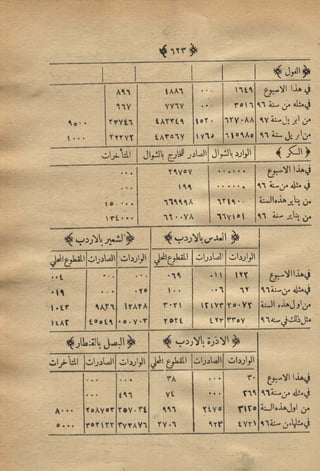 ﴿ ٦٢٣ ﴾
﴿ الفول ﴾
في هذا الاسبوع ١٦٤٩ ٠٠٠ ١٨٨٦ ٨٩٦
في مثله من سنة ٩٦ ٣٥١٦ ٠٠٠ ٧٧٦٧ ٩٦٧
من ابريل سنة ٩٧ ٦٢٧٠٨٨ ٤٥٢٠ ٤٨٢٣٤٩ ٢٣٧٤٦ ٩٥٠٠
من ابريل سنة ٩٦ ٦١٥٩٨٥ ١٧٦٥ ٤٨٣٥٦٧ ٢٢٢٧٢ ١٠٠٠
﴿ السكر ﴾ الوارد بالشوال الصادر للخارج بالشوال المتأخرات
في هذا الاسبوع ٠٠٠٠٠٠ ٢٩٧٥٧ ٠٠٠
في مثله من سنة ٩٦ ٠٠٠٠٠٠ ١٩٩ ٠٠٠
من يناير هذه السنة ٦٢٤٩٠٠ ٦٦٩٩٩٨ ١٥٠٠٠
من يناير سنة ٩٦ ٦٦٧١٥١ ٦٦٠٠٧٨ ١٣٤٠٠٠
﴿ العدس بالاردب ﴾ ﴿ الشعير بالاردب ﴾
الواردات الصادرات المقطوع المحلي الواردات الصادرات المقطوع المحلي
في هذا الاسبوع ١٢٢ ٠١١ ٠٦٩ ٠٠٠ ٠٠٠ ٠٠٤
في مثله من سنة ٩٦ ٦٢ ٠٠٦ ١٠٠ ٠٢٥ ٠٠٠ ٠١٩
من اول هذه السنة ٢٥٠٧٢ ١٢٤٧٣ ٣٠٢١ ١٢٨٢٨ ٩٨٢٦ ١٠٤٣
مثل ذلك في سنة ٩٦ ٣٣٥٧ ٤٢٣ ٢٥٢٤ ٥٠٧٠٣ ٤٥٥٤٩ ١٤٨٢
﴿ الاذرة بالاردب ﴾ ﴿ البصل بالقنطار ﴾
الواردات الصادرات المقطوع المحلي الواردات الصادرات المتاخرات
في هذا الاسبوع ٣٠ ٠٠٠ ٣٨ ٠٠٠ ٠٠٠
في مثله من سنة ٩٦ ٢٦٩ ٠٠٠ ٧٤ ٤٩٦ ٠٠٠
من اول هذه السنة ٣١٢٥ ٢٤٧٥ ٩٩٦ ٢٥٧٠٣٤ ٢٥٨٧٥٣ ٨٠٠٠
في مثلها من سنة ٩٦ ٤٧٢١ ٩٢٣ ٢٧٠٦ ٣٧٣٨٧٦ ٣٥٢١٢٢ ٥٠٠٠